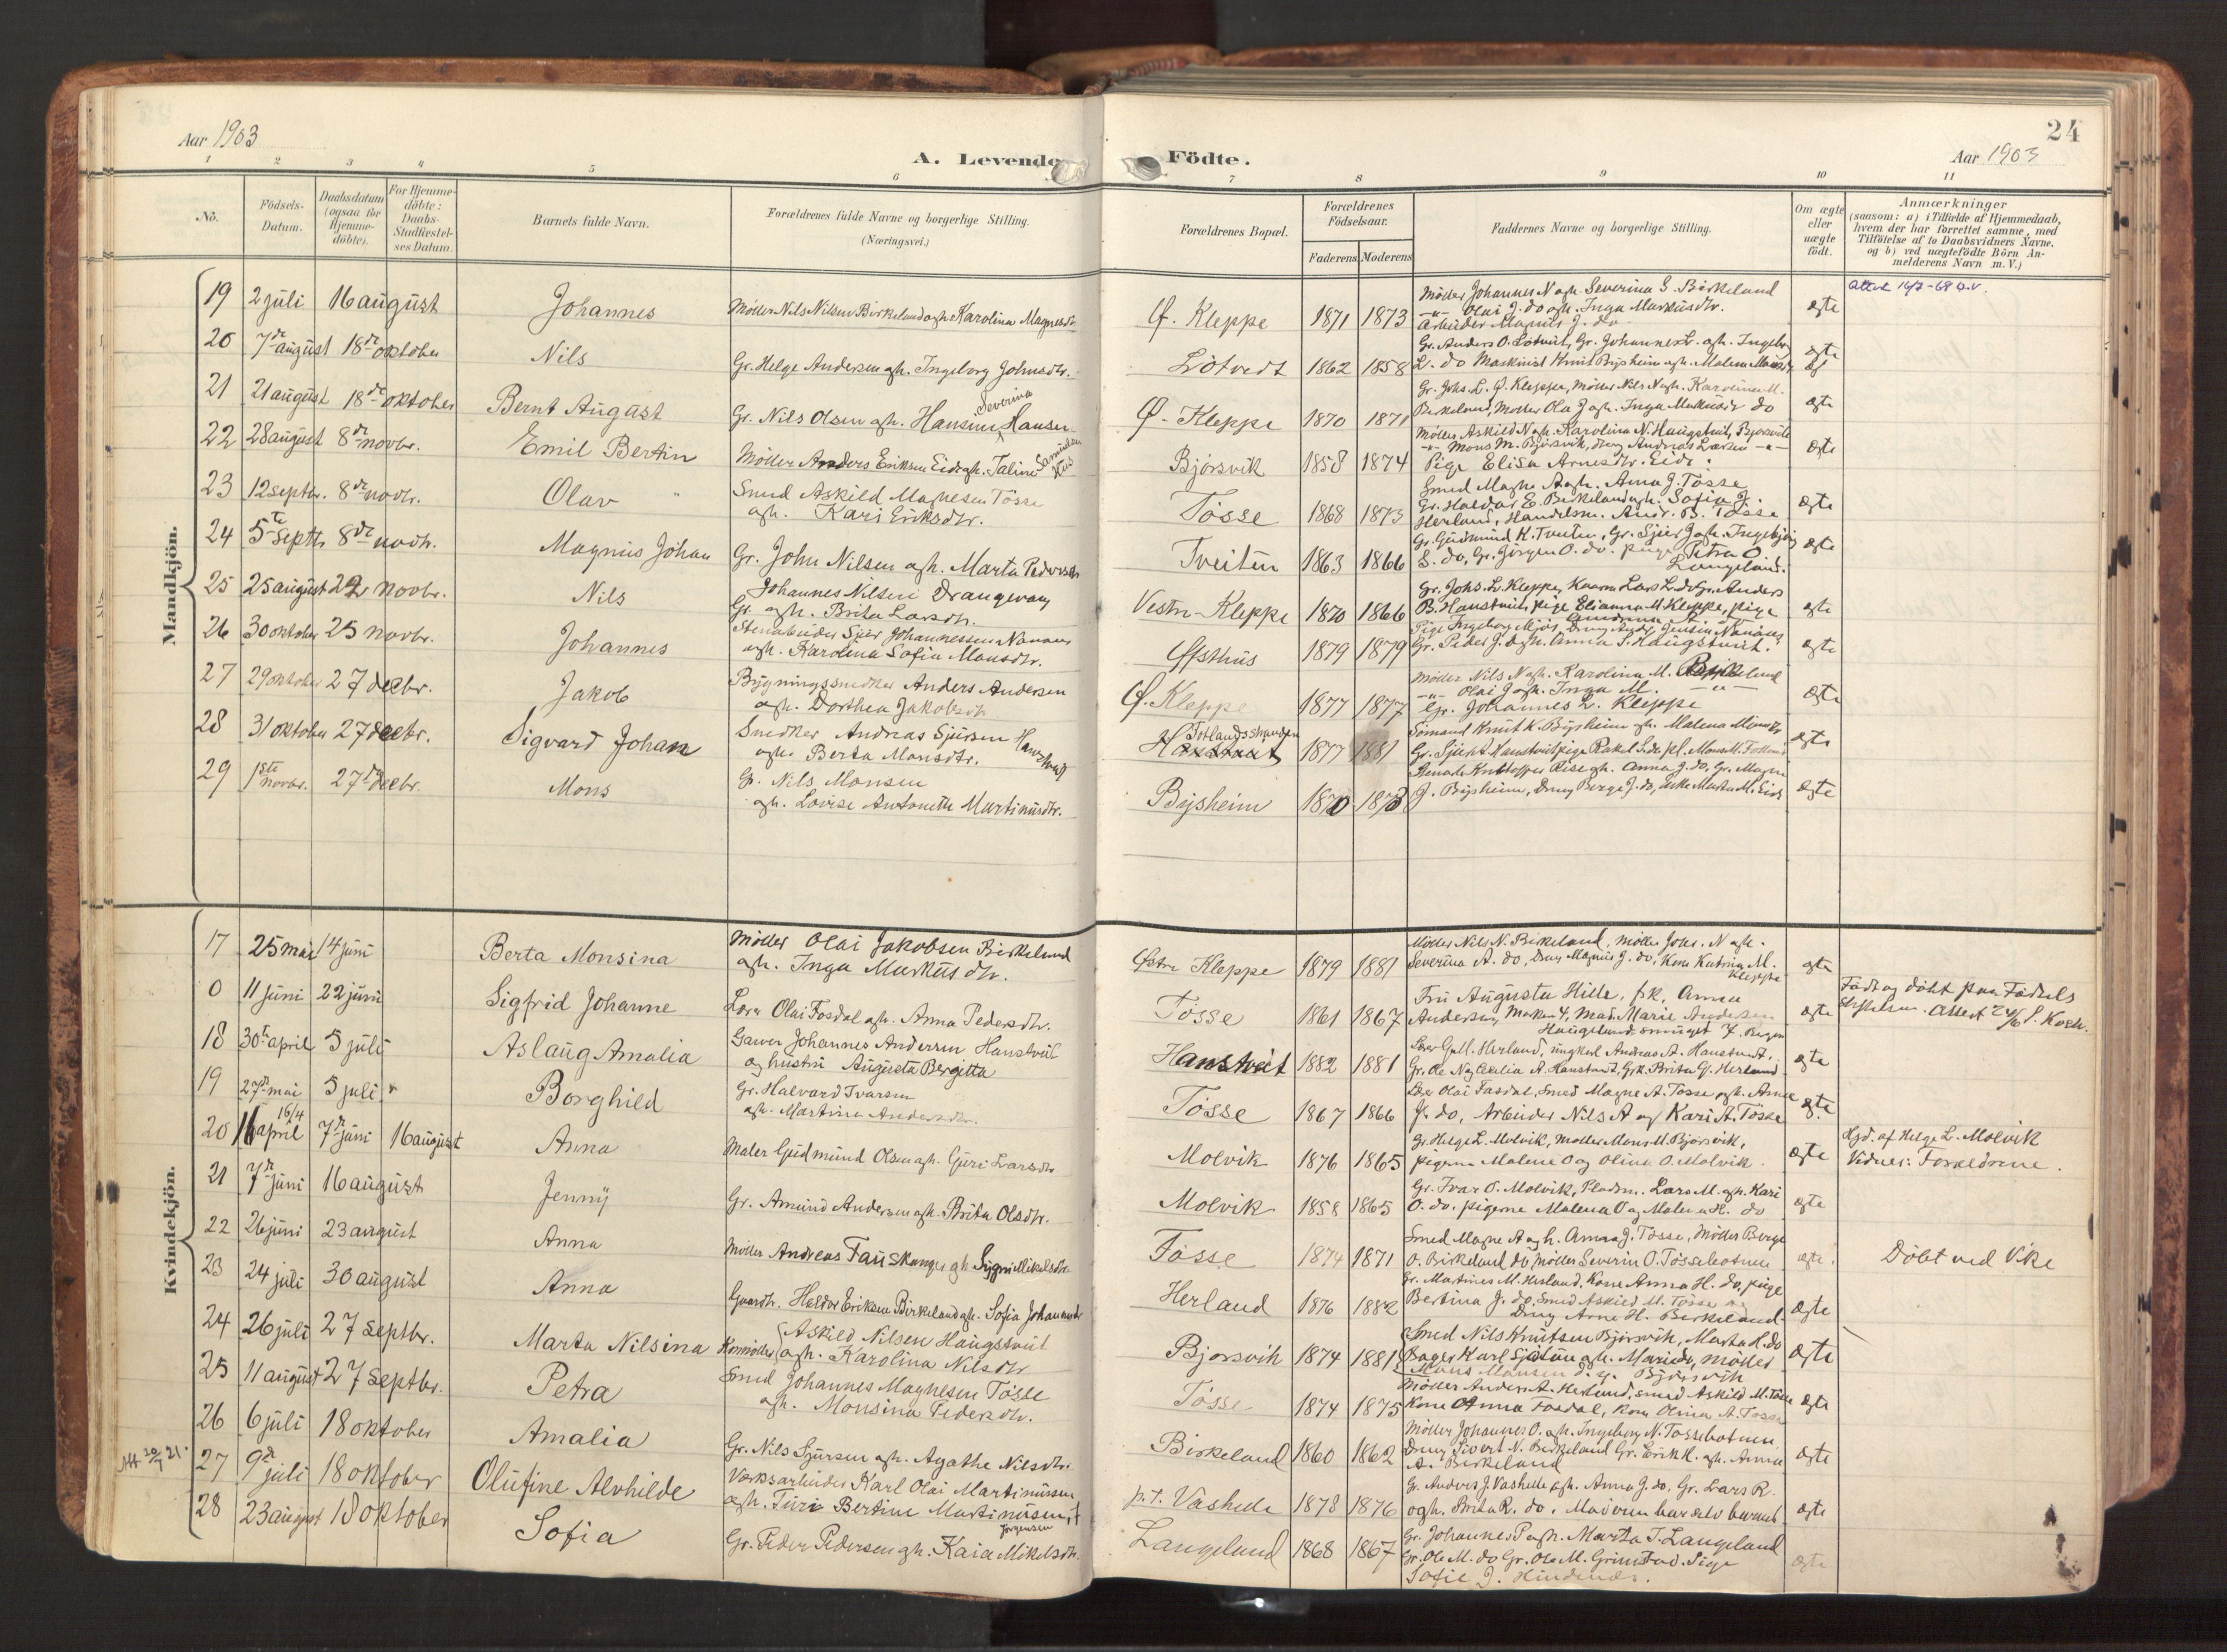 24
Aar 1903
A. Levende Fødte.
Aar 1903
1 2 3 4 5 6 7 8 9 10 11
No.
Fødsels-Datum.
Daabsdatum (ogsaa for Hjemme-døbte).
For Hjemme-døbte: Daabs-Stadfæstel-ses Datum.
Barnets fulde Navn.
Forældrenes fulde Navne og borgerlige Stilling. (Næringsvei.)
Forældrenes Bopæl.
Forældrenes Fødselsaar.
Faderens Moderens
Faddernes Navne og borgerlige Stilling.
Om ægte eller uægte født.
Anmærkninger (saasom: a) i Tilfælde af Hjemmedaab, hvem der har forrettet samme, med Tilføielse af to Daabsvidners Navne. og b) ved uægtefødte Børn Anmelderens Navn m. V.)
Mandkjön.
19 2 juli 16 august Johannes Møller Nils Nilsen Birkeland ogh. Karolina Magnesdtr. Ø. Kleppe 1871 1873 Møller Johannes N ogh. Severina G. Birkeland
-"- Olai J. do ogh. Inga Markusdtr.
Arbeider Magnus J. do ægte
20 7de august 18de oktober Nils Gr. Helge Andersen ogh. Ingeborg Johnsdtr. Lötvedt 1862 1858 Gr. Anders O. Lötveit, Gr. Johannes L. ogh. Ingebr.
L. do Maskinist Knut Bysheim ogh. Malena ægte
21 21 august 18de oktober Bernt August Gr. Nils Olsen ogh. Hansine Severina Hansen Ø. Kleppe 1870 1871 Gr. Johs. L. Ø. Kleppe, Møller Nils N ogh. Karolina M.
Birkeland, Møller Ola J ogh. Inga do ægte
22 28 august 8de novbr. Emil Bertin Møller Anders Eriksen Eide ogh. Taline Bjørsvik 1858 1874 Møller Askild N ogh. Karolina N. Haugstveit, Bjørsvik
-"- Mons M. Bjørsvik, Dreng Andreas Larsen -"-
Pige Elisa Arnesdtr. Eide. ægte
23 12 septbr. 8de novbr. Olav Smed Askild Magnesen Tösse
ogh. Kari Eriksdtr. Tösse 1868 1873 Smed Magne A ogh. Anna J. Tösse
Gr. Haldor E. Birkeland ogh. Sofia J.
Herland, Handelsm. Andr. B. Tösse ægte
24 5te septbr. 8de novbr. Magnus Johan Gr. John Nilsen ogh. Marta Pedersdtr. Tveiten 1863 1866 Gr. Gudmund K. Tveiten, Gr. Sjur J ogh. Ingebjörg
S. do, Gr. Jörgen O. do. pige Petra O.
Langeland. ægte
25 25 august 22 novbr. Nils Johannes Nilsen Drangevaag
Gr. ogh. Brita Larsdtr. Vestre Kleppe 1870 1866 Gr. Johs. L. Kleppe, Lars L. do Gr. Anders
B. Hanstveit, pige Elianna M. Kleppe, pige ægte
26 30 oktober 25 novbr. Johannes Stenarbeider Sjur Johannessen
ogh. Karolina Sofia Monsdtr. Offsthus 1879 1879 Pige Ingeborg Mjös, Dreng
Gr. Peder J. ogh. Anna S. Haugstveit. ægte
27 29 oktober 27 decbr. Jakob Bygningssnedker Anders Andersen
ogh. Dorthea Jakobsdtr. Ø. Kleppe 1877 1877 Møller Nils N ogh. Karolina M. Birkeland
-"- Olai J ogh. Inga M. -"-
Gr. Johannes L. Kleppe ægte
28 31 oktober 27 decbr. Sigvard Johan Snedker Andreas Sjursen Hanstveit
ogh. Berta Monsdtr. Totlandsstranden 1877 1881 Sömand Knut K. Bysheim ogh. Malena
Gr. Sjur Hanstveit, pige Rakel S. do ægte
29 1ste novbr. 27de decbr. Mons Gr. Nils Monsen
ogh. Lovise Antonette Martinusdtr. Bysheim 1870 1873 Kristoffer Rise ogh. Anna J. do, Gr. Magne
J. Bysheim, Dreng Berge J. do, Enke Marta M. Eide ægte
Kvindekjön.
17 25 mai 14 juni Berta Monsina Møller Olai Jakobsen Birkeland
ogh. Inga Markusdtr. Østre Kleppe 1879 1881 Møller Nils N. Birkeland, Møller Johs. N ogh.
Severina A. do, Dreng Magnus J. do, Kone Katrina M.
Kleppe ægte
0 11 juni 22 juni Sigfrid Johanne Lærer Olai Fosdal ogh. Anna Pedersdtr. Tösse 1861 1867 Fru Augusta Hille, frk. Anna
Andersen, Mad. Marie Andersen
Haugeland smuget 7. Bergen ægte Födt og döbt paa Födsels
stiftelsen. Attest 24/6 S. Koch.
18 30te april 5 juli Aslaug Amalia Garver Johannes Andersen Hanstveit
og hustru Augusta Bergitta Hanstveit 1882 1881 Lærer G. M. Herland, ungkarl Andreas A. Hanstveit,
Gr. Ole N og Cecilia A. Hanstveit, Grk. Brita G. Herland ægte
19 27de mai 5 juli Borghild Gr. Halvard Ivarsen
ogh. Martina Andersdtr. Tösse 1867 1866 Lærer Olai Fosdal, Smed Magne A. Tösse ogh. Anna
J. do, Arbeider Nils A og Kari A. Tösse ægte
20 16/4 16 april 7de juni 16 august Anna Maler Gudmund Olsen ogh. Guri Larsdtr. Molvik 1876 1865 Gr. Helge L. Molvik, Møller Mons M. Bjørsvik,
pigerne Malene O og Olina O. Molvik. ægte Hjd. af Helge L. Molvik
Vidner: Forældrene.
21 7de juni 16 august Jenny Gr. Amund Andersen ogh. Brita Olsdtr. Molvik 1858 1865 Gr. Ivar O. Molvik, Pladsm. Lars M. ogh. Kari
O. do, pigerne Malena O og Malena H. do ægte
22 26 juni 23 august Anna Møller Andreas Fauskanger ogh. Signe Mikkelsdtr. Tösse 1874 1871 Smed Magne A ogh. Anna J. Tösse, Møller Berge
O. Birkeland do, Møller Severin O. Tössebotnen ægte. Döbt ved Vike
23 24 juli 30 august Anna Gaardbr. Haldor Eriksen Birkeland ogh. Sofia Johannesdtr. Herland 1876 1882 Gr. Martines M. Herland, Kone Anna H. do, pige
Bertina J. do, Smed Askild M. Tösse og
Dreng Arne H. Birkeland. ægte
24 26 juli 27 septbr. Marta Nilsina Kornmøller Askild Nilsen Haugstveit
ogh. Karolina Nilsdtr. Bjorsvik 1874 1881 Smed Nils Knutsen Bjørsvik, Marta K. do
Bager Karl ogh. Marie do, Møller
Mons Monsen d.y. Bjørsvik ægte
25 11 august 27 septbr. Petra Smed Johannes Magnesen Tösse
ogh. Monsina Pedersdtr. Tösse 1874 1875 Møller Anders A. Herland, Smed Askild M. Tösse
Kone Anna Fosdal, Kone Olina A. Tösse ægte
26 6 juli 18 oktober Amalia Gr. Nils Sjursen ogh. Agathe Nilsdtr. Birkeland 1860 1862 Møller Johannes O. ogh. Ingeborg N. Tössebotnen
Dreng Sivert N. Birkeland Gr. Erik H. ogh. Anna
A. Birkeland ægte
Att 20/7 21. 27 9de juli 18 oktober Olufine Alvhilde Værksarbeider Karl Olai Martinussen
ogh. Turi Bertine Martinusen
Jørgensen p.t. Vashelle 1878 1876 Gr. Anders J. Vashelle ogh. Anna J. do, Gr. Lars R.
ogh. Brita R. do. Moderen bar selv barnet. ægte
28 23 august 18 oktober Sofia Gr. Peder Pedersen ogh. Kaia Mikelsdtr. Langeland 1868 1867 Gr. Johannes P ogh. Marta T. Langeland
Gr. Ole M. do Gr. Ole M. Grimstad. Pige
Sofie J. Hindenes. ægte
Attest 16/7-68